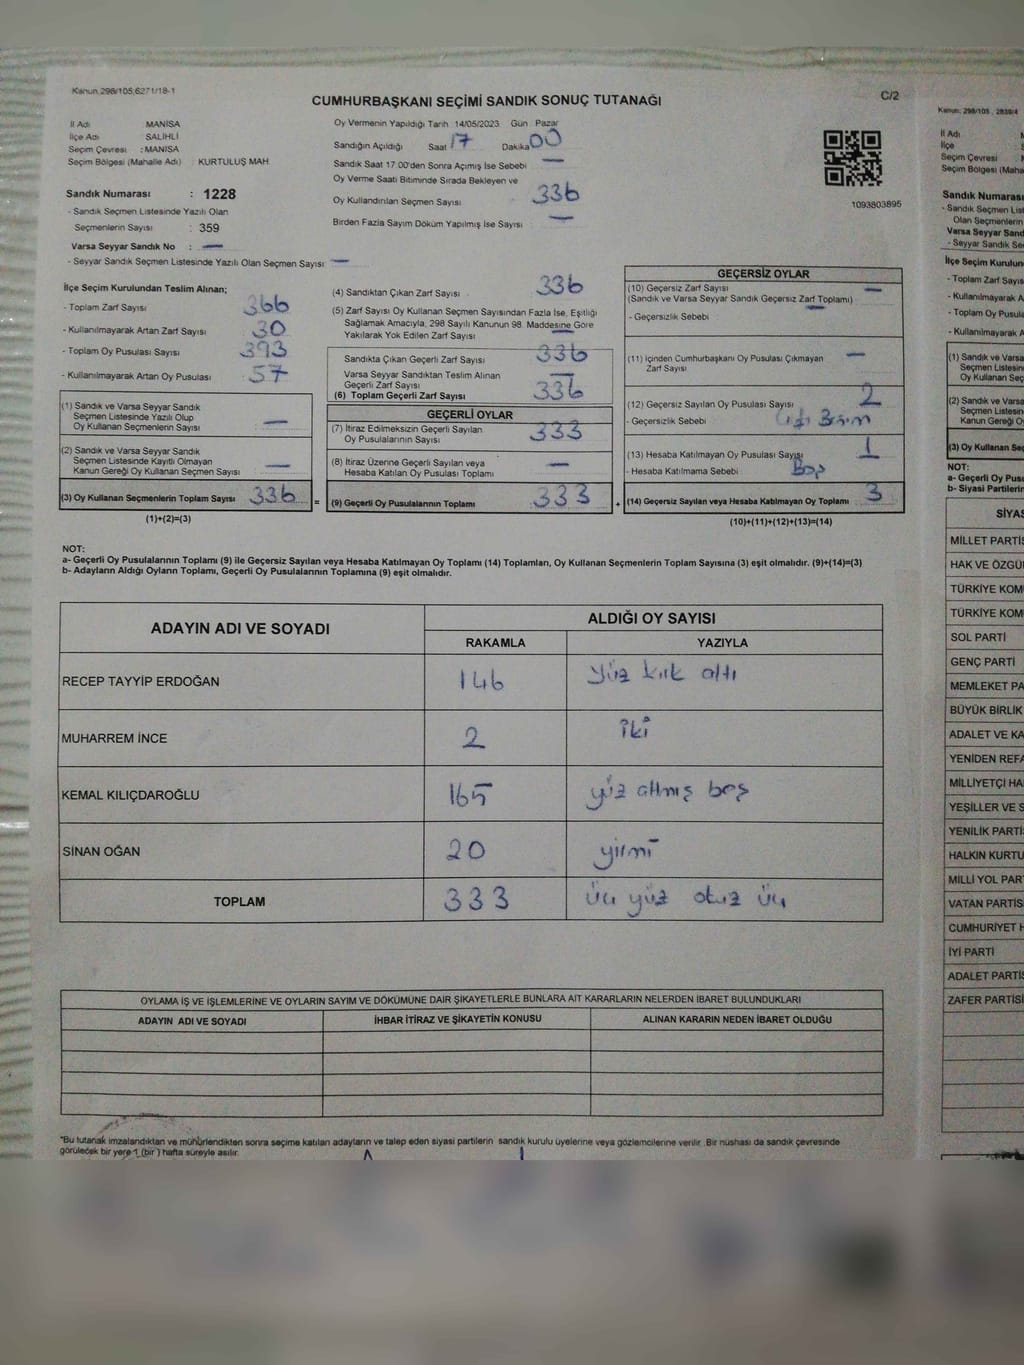 Kanun 298/105,6271/18-1
CUMHURBAŞKANI SEÇİMİ SANDIK SONUÇ TUTANAĞI
C/2
İl Adı MANİSA
İlçe Adı SALİHLİ
Seçim Çevresi : MANİSA
Seçim Bölgesi (Mahalle Adı) : KURTULUŞ MAH
Sandık Numarası : 1228
- Sandık Seçmen Listesinde Yazılı Olan
Seçmenlerin Sayısı : 359
Varsa Seyyar Sandık No : —
- Seyyar Sandık Seçmen Listesinde Yazılı Olan Seçmen Sayısı: —
Oy Vermenin Yapıldığı Tarih 14/05/2023 Gün Pazar
Sandığın Açıldığı Saat 17 Dakika 00
Sandık Saat 17 00'den Sonra Açımış İse Sebebi —
Oy Verme Saati Bitiminde Sırada Bekleyen ve
Oy Kullandırılan Seçmen Sayısı 336
Birden Fazla Sayım Döküm Yapılmış İse Sayısı —
1093803895
İlçe Seçim Kurulundan Teslim Alınan;
- Toplam Zarf Sayısı 366
- Kullanılmayarak Artan Zarf Sayısı 30
- Toplam Oy Pusulası Sayısı 393
- Kullanılmayarak Artan Oy Pusulası 57
(1) Sandık ve Varsa Seyyar Sandık
Seçmen Listesinde Yazılı Olup
Oy Kullanan Seçmenlerin Sayısı : —
(2) Sandık ve Varsa Seyyar Sandık
Seçmen Listesinde Kayıtlı Olmayan
Kanun Gereği Oy Kullanan Seçmen Sayısı : —
(3) Oy Kullanan Seçmenlerin Toplam Sayısı 336 =
(1)+(2)=(3)
(4) Sandıktan Çıkan Zarf Sayısı 336
(5) Zarf Sayısı Oy Kullanan Seçmen Sayısından Fazla İse, Eşitliği
Sağlamak Amacıyla, 298 Sayılı Kanunun 98. Maddesine Göre
Yakılarak Yok Edilen Zarf Sayısı —
Sandıkta Çıkan Geçerli Zarf Sayısı 336
Varsa Seyyar Sandıktan Teslim Alınan
Geçerli Zarf Sayısı —
(6) Toplam Geçerli Zarf Sayısı 336
GEÇERLİ OYLAR
(7) İtiraz Edilmeksizin Geçerli Sayılan
Oy Pusulalarının Sayısı 333
(8) İtiraz Üzerine Geçerli Sayılan veya
Hesaba Katılan Oy Pusulası Toplamı —
(9) Geçerli Oy Pusulalarının Toplamı 333 +
GEÇERSİZ OYLAR
(10) Geçersiz Zarf Sayısı —
(Sandık ve Varsa Seyyar Sandık Geçersiz Zarf Toplamı)
- Geçersizlik Sebebi —
(11) İçinden Cumhurbaşkanı Oy Pusulası Çıkmayan —
Zarf Sayısı
(12) Geçersiz Sayılan Oy Pusulası Sayısı 2
- Geçersizlik Sebebi
(13) Hesaba Katılmayan Oy Pusulası Sayısı 1
- Hesaba Katılmama Sebebi Boş
(14) Geçersiz Sayılan veya Hesaba Katılmayan Oy Toplamı 3
(10)+(11)+(12)+(13)=(14)
NOT:
a- Geçerli Oy Pusulalarının Toplamı (9) ile Geçersiz Sayılan veya Hesaba Katılmayan Oy Toplamı (14) Toplamları, Oy Kullanan Seçmenlerin Toplam Sayısına (3) eşit olmalıdır. (9)+(14)=(3)
b- Adayların Aldığı Oyların Toplamı, Geçerli Oy Pusulalarının Toplamına (9) eşit olmalıdır.
ADAYIN ADI VE SOYADI
ALDIĞI OY SAYISI
RAKAMLA YAZIYLA
RECEP TAYYİP ERDOĞAN 146 yüz kırk altı
MUHARREM İNCE 2 iki
KEMAL KILIÇDAROĞLU 165 yüz altmış beş
SİNAN OĞAN 20 yirmi
TOPLAM 333 üç yüz otuz üç
OYLAMA İŞ VE İŞLEMLERİNE VE OYLARIN SAYIM VE DÖKÜMÜNE DAİR ŞİKAYETLERLE BUNLARA AİT KARARLARIN NELERDEN İBARET BULUNDUKLARI
ADAYIN ADI VE SOYADI İHBAR İTİRAZ VE ŞİKAYETİN KONUSU ALINAN KARARIN NEDEN İBARET OLDUĞU
*Bu tutanak imzalandıktan ve mühürlendikten sonra seçime katılan adayların ve talep eden siyasi partilerin sandık kurulu üyelerine veya gözlemcilerine verilir. Bir nüshası da sandık çevresinde
görülecek bir yere 1 (bir) hafta süreyle asılır.
Kanun: 298/105 , 2839/4
İl Adı
İlçe
Seçim Çevresi
Seçim Bölgesi (Maha
Sandık Numarası
- Sandık Seçmen List
Olan Seçmenlerin
Varsa Seyyar Sand
- Seyyar Sandık Se
İlçe Seçim Kurulun
- Toplam Zarf Sayıs
- Kullanılmayarak
- Toplam Oy Pusula
- Kullanılmayarak A
(1) Sandık ve Varsa
Seçmen Listesin
Oy Kullanan Seç
(2) Sandık ve Varsa
Seçmen Listesin
Kanun Gereği O
(3) Oy Kullanan Seç
NOT:
a- Geçerli Oy Pusu
b- Siyasi Partilerin
SİYAS
MİLLET PARTİS
HAK VE ÖZGÜ
TÜRKİYE KOM
TÜRKİYE KOM
SOL PARTİ
GENÇ PARTİ
MEMLEKET PA
BÜYÜK BİRLİK
ADALET VE KA
YENİDEN REFA
MİLLİYETÇİ HA
YEŞİLLER VE S
YENİLİK PARTİ
HALKIN KURTU
MİLLİ YOL PAR
VATAN PARTİS
CUMHURİYET H
İYİ PARTİ
ADALET PARTİS
ZAFER PARTİSİ